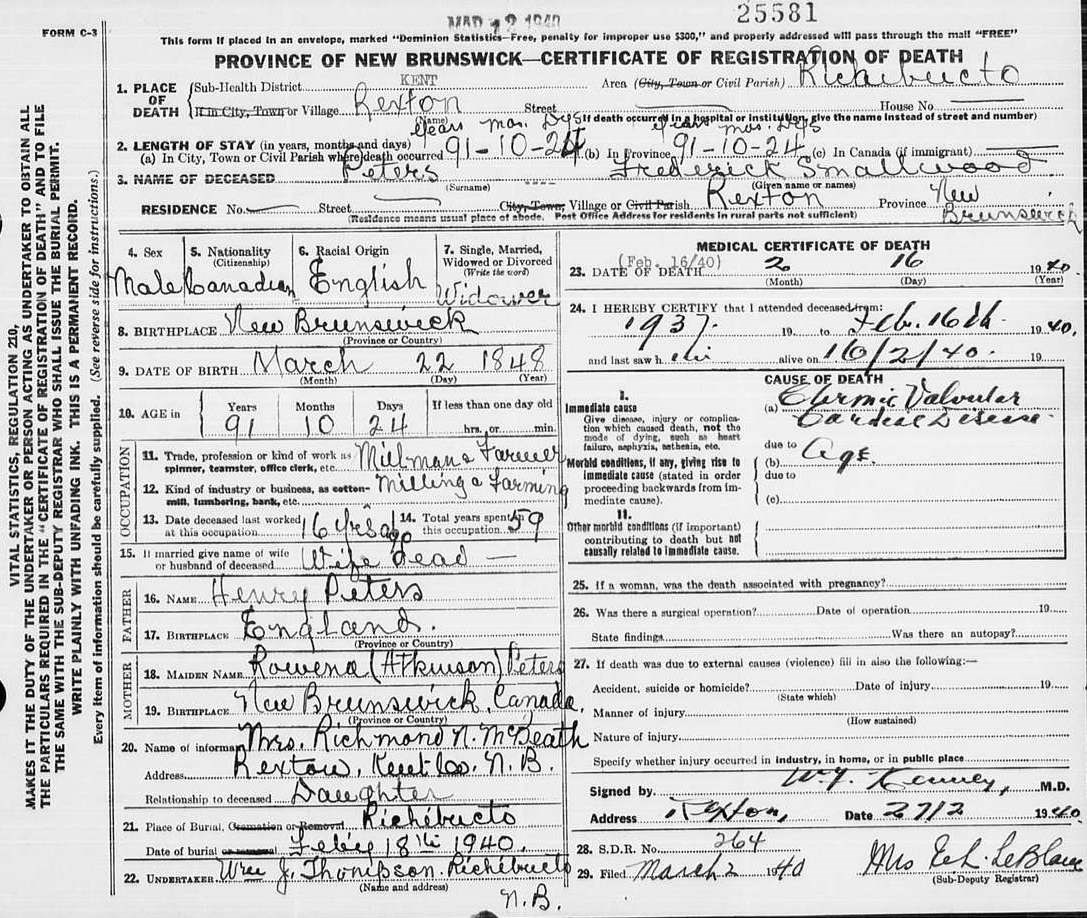 MAR 12 1940
25581
FORM C-3
This form if placed in an envelope, marked "Dominion Statistics—Free, penalty for improper use $300," and properly addressed will pass through the mail "FREE"
PROVINCE OF NEW BRUNSWICK—CERTIFICATE OF REGISTRATION OF DEATH
1. PLACE OF DEATH
Sub-Health District KENT Area (City, Town or Civil Parish) Richibucto
If in City, Town or Village Rexton Street House No
(Name) If death occurred in a hospital or institution, give the name instead of street and number)
Years mos. Dys Years mos. Dys
2. LENGTH OF STAY (in years, months and days)
(a) In City, Town or Civil Parish where death occurred 91-10-24 (b) In Province 91-10-24 (c) In Canada (if immigrant)
3. NAME OF DECEASED Peters Frederick Smallwood
(Surname) (Given name or names)
RESIDENCE No. Street City, Town, Village or Civil Parish Rexton Province New Brunswick
(Residence means usual place of abode. Post Office Address for residents in rural parts not sufficient)
4. Sex
Male
5. Nationality
(Citizenship)
Canadian
6. Racial Origin
English
7. Single, Married, Widowed or Divorced
(Write the word)
Widower
8. BIRTHPLACE New Brunswick
(Province or Country)
9. DATE OF BIRTH March 22 1848
(Month) (Day) (Year)
10. AGE in
Years Months Days If less than one day old
91 10 24 hrs. or min.
OCCUPATION
11. Trade, profession or kind of work as spinner, teamster, office clerk, etc. Millman & Farmer
12. Kind of industry or business, as cotton-mill, lumbering, bank, etc. Milling & Farming
13. Date deceased last worked at this occupation. 16 yrs ago
14. Total years spent in this occupation. 59
15. If married give name of wife or husband of deceased Wife dead —
FATHER
16. NAME Henry Peters
17. BIRTHPLACE England.
(Province or Country)
MOTHER
18. MAIDEN NAME Rowena (Atkinson) Peters
19. BIRTHPLACE New Brunswick, Canada.
(Province or Country)
20. Name of informant Mrs. Richmond N. McBeath
Address Rexton, Kent Co. N.B.
Relationship to deceased Daughter
21. Place of Burial, Cremation or Removal Richibucto
Date of burial or removal Feby 18th 1940.
22. UNDERTAKER Wm J. Thompson. Richibucto
(Name and address)
N.B.
MEDICAL CERTIFICATE OF DEATH
(Feb. 16/40)
23. DATE OF DEATH 2 16 1940
(Month) (Day) (Year)
24. I HEREBY CERTIFY that I attended deceased from:
1937. 19 to Feb. 16th 1940,
and last saw him alive on 16/2/40. 19
CAUSE OF DEATH
I.
Immediate cause
Give disease, injury or complication which caused death, not the mode of dying, such as heart failure, asphyxia, asthenia, etc.
(a) Chronic Valvular
Cardiac Disease
due to
Morbid conditions, if any, giving rise to immediate cause (stated in order proceeding backwards from immediate cause).
(b) Age.
due to
(c)
II.
Other morbid conditions (if important) contributing to death but not causally related to immediate cause.
25. If a woman, was the death associated with pregnancy?
26. Was there a surgical operation? Date of operation 19
State findings Was there an autopsy?
27. If death was due to external causes (violence) fill in also the following:—
Accident, suicide or homicide? Date of injury 19
(State which)
Manner of injury
(How sustained)
Nature of injury
Specify whether injury occurred in industry, in home, or in public place
Signed by Kenney, M.D.
Address Rexton, Date 27/2 1940.
28. S.D.R. No. 264
29. Filed March 2 1940 Mrs LeBlanc
(Sub-Deputy Registrar)
VITAL STATISTICS, REGULATION 210,
MAKES IT THE DUTY OF THE UNDERTAKER OR PERSON ACTING AS UNDERTAKER TO OBTAIN ALL
THE PARTICULARS REQUIRED IN THE "CERTIFICATE OF REGISTRATION OF DEATH" AND TO FILE
THE SAME WITH THE SUB-DEPUTY REGISTRAR WHO SHALL ISSUE THE BURIAL PERMIT.
WRITE PLAINLY WITH UNFADING INK. THIS IS A PERMANENT RECORD.
Every item of information should be carefully supplied. (See reverse side for instructions.)